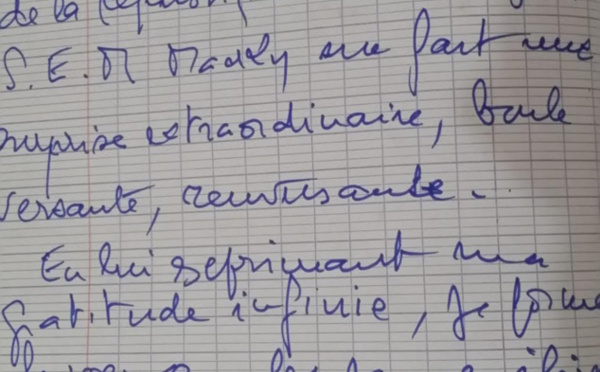 de la
S.E.M Macky me fait une
surprise extraordinaire, boule
versante,
En lui exprimant ma
gratitude infinie, je forme